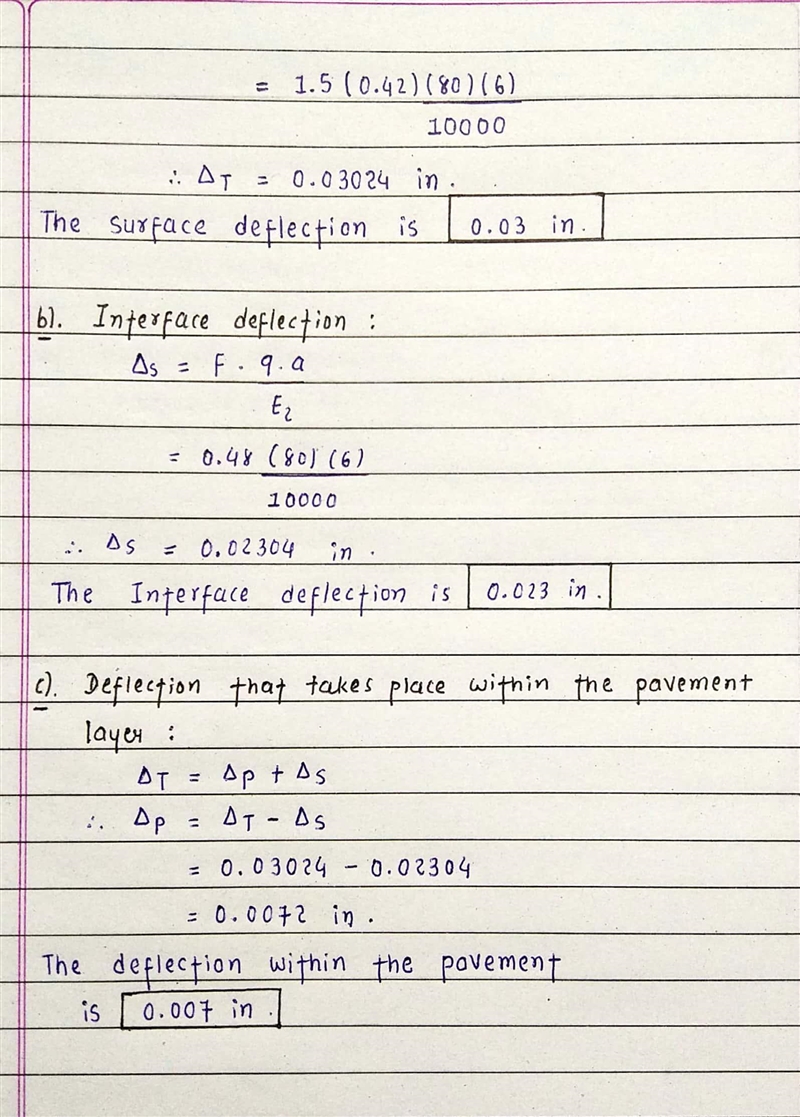 = 1.5 (0.42) (80) (6)
10000
∴ ΔT = 0.03024 in.
The surface deflection is 0.03 in.
b). Interface deflection :
Δs = F . q.a
E2
= 0.48 (80) (6)
10000
∴ Δs = 0.02304 in.
The Interface deflection is 0.023 in.
c). Deflection that takes place within the pavement
layer :
ΔT = Δp + Δs
∴ Δp = ΔT - Δs
= 0.03024 - 0.02304
= 0.0072 in.
The deflection within the pavement
is 0.007 in.